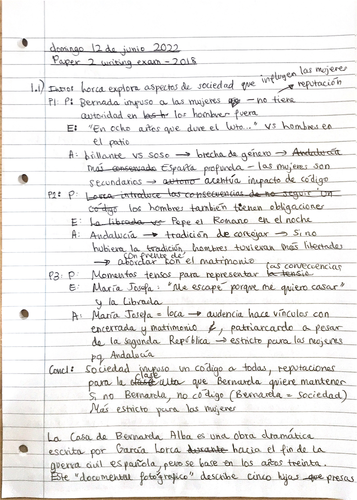 domingo 12 de junio 2022
Paper 2 writing exam - 2018
1.1) Intro: Lorca explora aspectos de sociedad que influyen las mujeres
→ reputación
P1: P: Bernada impuso a las mujeres - no tiene
autoridad en los hombres fuera
E: "En ocho años que dure el luto..." vs hombres en
el patio
A: brillante vs soso → brecha de género → Andalucía
más conservado España profunda - las mujeres son
secundarios → acentúa impacto de código
P2: P: Lorca introduce las consecuencias de no seguir un
código los hombres también tienen obligaciones
E: La librada vs Pepe el Romano en el noche
A: Andalucía → tradición de cortejar → si no
hubiera la tradición, hombres tuvieran más libertades
→ abordar con el matrimonio
con frente de
P3: P: Momentos tensos para representar la tensión
las consecuencias
E: María Josefa: "Me escapé porque me quiero casar"
y la Librada
A: María Josefa = loca → audencia hace vínculos con
encerrada y matrimonio, patriarcardo a pesar
de la segunda República → estricto para las mujeres
pq Andalucía
Concl: sociedad impuso un código a todas, reputaciones
para la clase alta que Bernarda quiere mantener
Si no Bernarda, no código (Bernarda = sociedad)
Más estricto para las mujeres
La Casa de Bernarda Alba es una obra dramática
escrita por García Lorca durante hacia el fin de la
guerra civil española, pero se base en los años treinta.
Este "documental fotógrafico" describe cinco hijas que presas